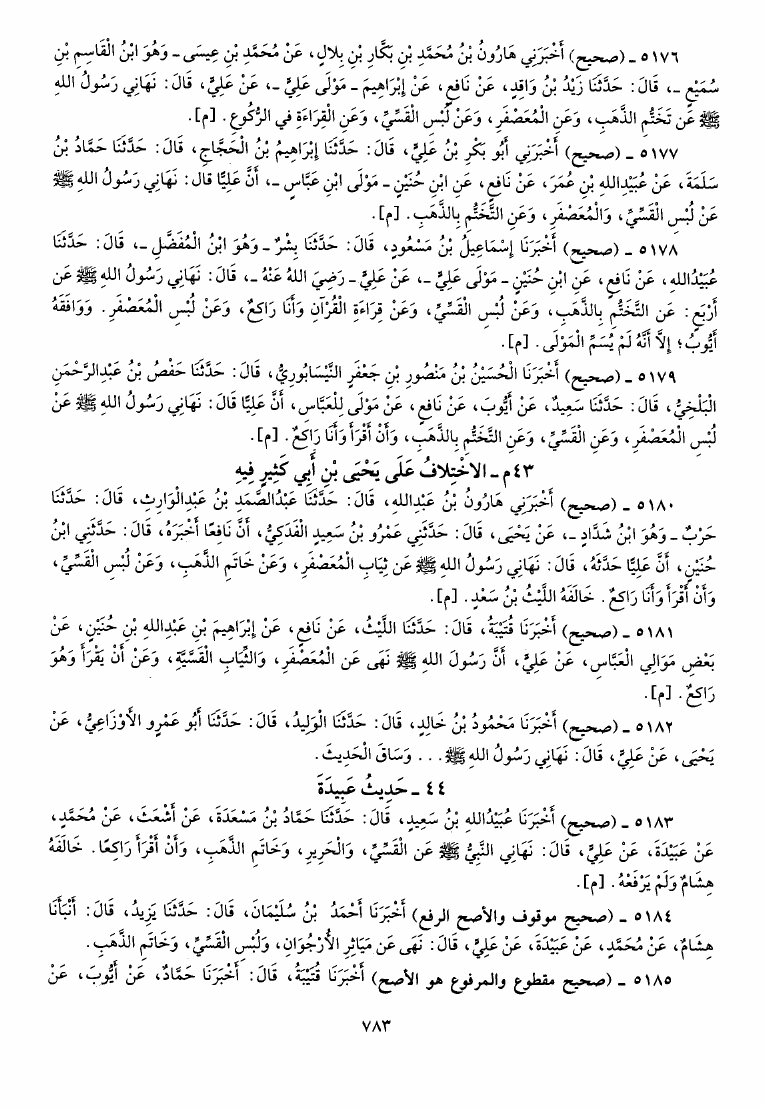 ٥١٧٦ ـ (صحيح) أَخْبَرَنِي هَارُونُ بْنُ مُحَمَّدِ بْنِ بَكَّارِ بْنِ بِلالٍ، عَنْ مُحَمَّدِ بْنِ عِيسَى ـ وَهُوَ ابْنُ الْقَاسِمِ بْنِ
سُمَيْعٍ ـ، قَالَ: حَدَّثَنَا زَيْدُ بْنُ وَاقِدٍ، عَنْ نَافِعٍ، عَنْ إِبْرَاهِيمَ ـ مَوْلَى عَلِيٍّ ـ، عَنْ عَلِيٍّ، قَالَ: نَهَانِي رَسُولُ اللهِ
ﷺ عَن تَخَتُّمِ الذَّهَبِ، وَعَنِ الْمُعَصْفَرِ، وَعَنْ لُبْسِ الْقَسِّيِّ، وَعَنِ الْقِرَاءَةِ فِي الرُّكُوعِ. [م].
٥١٧٧ ـ (صحيح) أَخْبَرَنِي أَبُو بَكْرِ بْنُ عَلِيٍّ، قَالَ: حَدَّثَنَا إِبْرَاهِيمُ بْنُ الْحَجَّاجِ، قَالَ: حَدَّثَنَا حَمَّادُ بْنُ
سَلَمَةَ، عَنْ عُبَيْدِاللهِ بْنِ عُمَرَ، عَنْ نَافِعٍ، عَنِ ابْنِ حُنَيْنٍ ـ مَوْلَى ابْنِ عَبَّاسٍ ـ، أَنَّ عَلِيًّا قال: نَهَانِي رَسُولُ اللهِ ﷺ
عَنْ لُبْسِ الْقَسِّيِّ، وَالْمُعَصْفَرِ، وَعَنِ التَّخَتُّمِ بِالذَّهَبِ. [م].
٥١٧٨ ـ (صحيح) أَخْبَرَنَا إِسْمَاعِيلُ بْنُ مَسْعُودٍ، قَالَ: حَدَّثَنَا بِشْرٌ ـ وَهُوَ ابْنُ الْمُفَضَّلِ ـ، قَالَ: حَدَّثَنَا
عُبَيْدُاللهِ، عَنْ نَافِعٍ، عَنِ ابْنِ حُنَيْنٍ ـ مَوْلَى عَلِيٍّ ـ، عَنْ عَلِيٍّ ـ رَضِيَ اللهُ عَنْهُ ـ، قَالَ: نَهَانِي رَسُولُ اللهِ ﷺ عَن
أَرْبَعٍ: عَنِ التَّخَتُّمِ بِالذَّهَبِ، وَعَنْ لُبْسِ الْقَسِّيِّ، وَعَنْ قِرَاءَةِ الْقُرْآنِ وَأَنَا رَاكِعٌ، وَعَنْ لُبْسِ الْمُعَصْفَرِ. وَوَافَقَهُ
أَيُّوبُ؛ إِلَّا أَنَّهُ لَمْ يُسَمِّ الْمَوْلَى. [م].
٥١٧٩ ـ (صحيح) أَخْبَرَنَا الْحُسَيْنُ بْنُ مَنْصُورِ بْنِ جَعْفَرٍ النَّيْسَابُورِيُّ، قَالَ: حَدَّثَنَا حَفْصُ بْنُ عَبْدِالرَّحْمَنِ
الْبَلْخِيُّ، قَالَ: حَدَّثَنَا سَعِيدٌ، عَنْ أَيُّوبَ، عَنْ نَافِعٍ، عَنْ مَوْلًى لِلْعَبَّاسِ، أَنَّ عَلِيًّا قَالَ: نَهَانِي رَسُولُ اللهِ ﷺ عَنْ
لُبْسِ الْمُعَصْفَرِ، وَعَنِ الْقَسِّيِّ، وَعَنِ التَّخَتُّمِ بِالذَّهَبِ، وَأَنْ أَقْرَأَ وَأَنَا رَاكِعٌ. [م].
٤٣م ـ الاخْتِلافُ عَلَى يَحْيَى بْنِ أَبِي كَثِيرٍ فِيهِ
٥١٨٠ ـ (صحيح) أَخْبَرَنِي هَارُونُ بْنُ عَبْدِاللهِ، قَالَ: حَدَّثَنَا عَبْدُالصَّمَدِ بْنُ عَبْدِالْوَارِثِ، قَالَ: حَدَّثَنَا
حَرْبٌ ـ وَهُوَ ابْنُ شَدَّادٍ ـ، عَنْ يَحْيَى، قَالَ: حَدَّثَنِي عَمْرُو بْنُ سَعِيدٍ الْفَدَكِيُّ، أَنَّ نَافِعًا أَخْبَرَهُ، قَالَ: حَدَّثَنِي ابْنُ
حُنَيْنٍ، أَنَّ عَلِيًّا حَدَّثَهُ، قَالَ: نَهَانِي رَسُولُ اللهِ ﷺ عَن ثِيَابِ الْمُعَصْفَرِ، وَعَنْ خَاتَمِ الذَّهَبِ، وَعَنْ لُبْسِ الْقَسِّيِّ،
وَأَنْ أَقْرَأَ وَأَنَا رَاكِعٌ. خَالَفَهُ اللَّيْثُ بْنُ سَعْدٍ. [م].
٥١٨١ ـ (صحيح) أَخْبَرَنَا قُتَيْبَةُ، قَالَ: حَدَّثَنَا اللَّيْثُ، عَنْ نَافِعٍ، عَنْ إِبْرَاهِيمَ بْنِ عَبْدِاللهِ بْنِ حُنَيْنٍ، عَنْ
بَعْضِ مَوَالِي الْعَبَّاسِ، عَنْ عَلِيٍّ، أَنَّ رَسُولَ اللهِ ﷺ نَهَى عَنِ الْمُعَصْفَرِ، وَالثِّيَابِ الْقَسِّيَّةِ، وَعَنْ أَنْ يَقْرَأَ وَهُوَ
رَاكِعٌ. [م].
٥١٨٢ ـ (صحيح) أَخْبَرَنَا مَحْمُودُ بْنُ خَالِدٍ، قَالَ: حَدَّثَنَا الْوَلِيدُ، قَالَ: حَدَّثَنَا أَبُو عَمْرٍو الأَوْزَاعِيُّ، عَنْ
يَحْيَى، عَنْ عَلِيٍّ، قَالَ: نَهَانِي رَسُولُ اللهِ ﷺ... وَسَاقَ الْحَدِيثَ.
٤٤ ـ حَدِيثُ عَبِيدَةَ
٥١٨٣ ـ (صحيح) أَخْبَرَنَا عُبَيْدُاللهِ بْنُ سَعِيدٍ، قَالَ: حَدَّثَنَا حَمَّادُ بْنُ مَسْعَدَةَ، عَنْ أَشْعَثَ، عَنْ مُحَمَّدٍ،
عَنْ عَبَيْدَةَ، عَنْ عَلِيٍّ، قَالَ: نَهَانِي النَّبِيُّ ﷺ عَنِ الْقَسِّيِّ، وَالْحَرِيرِ، وَخَاتَمِ الذَّهَبِ، وَأَنْ أَقْرَأَ رَاكِعًا. خَالَفَهُ
هِشَامٌ وَلَمْ يَرْفَعْهُ. [م].
٥١٨٤ ـ (صحيح موقوف والأصح الرفع) أَخْبَرَنَا أَحْمَدُ بْنُ سُلَيْمَانَ، قَالَ: حَدَّثَنَا يَزِيدُ، قَالَ: أَنْبَأَنَا
هِشَامٌ، عَنْ مُحَمَّدٍ، عَنْ عَبَيْدَةَ، عَنْ عَلِيٍّ، قَالَ: نَهَى عَن مَيَاثِرِ الأُرْجُوَانِ، وَلُبْسِ الْقَسِّيِّ، وَخَاتَمِ الذَّهَبِ.
٥١٨٥ ـ (صحيح مقطوع والمرفوع هو الأصح) أَخْبَرَنَا قُتَيْبَةُ، قَالَ: أَخْبَرَنَا حَمَّادٌ، عَنْ أَيُّوبَ، عَنْ
٧٨٣